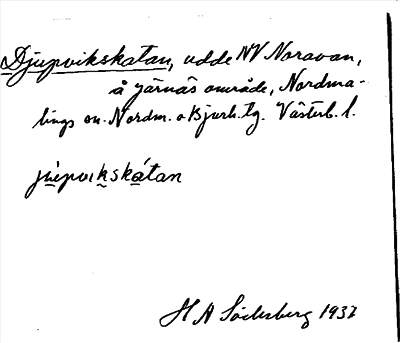 Djupvikskatan, udde NV Noravan,
å Järnäs område, Nordma-
lings sn. Nordm. o Bjurh. tg. Västerb. l.
júpvikskátan
H A Söderberg 1937